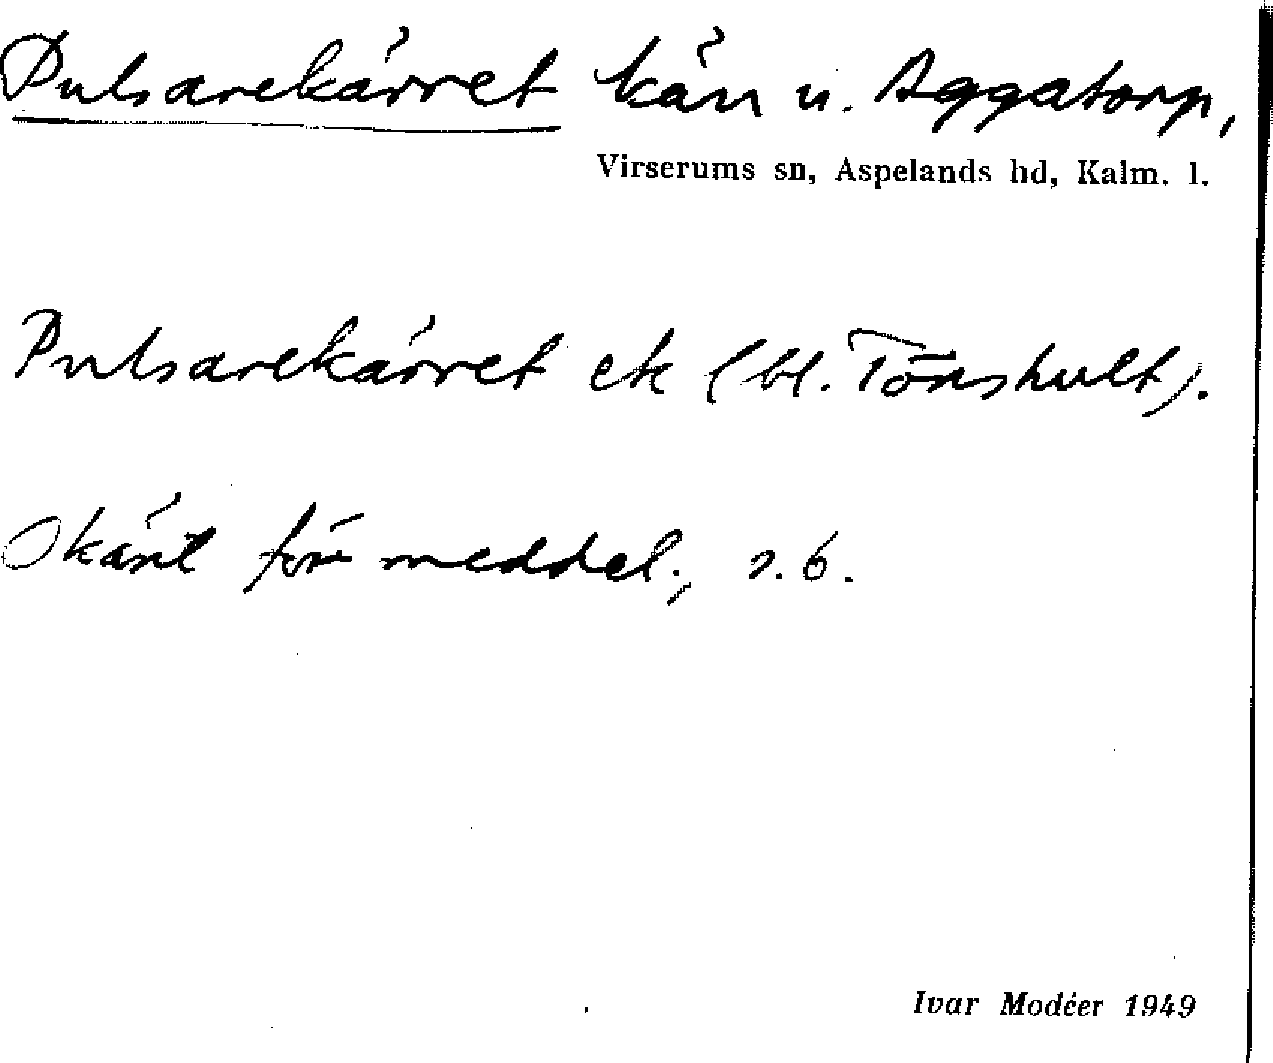 Pulsarekärret kärr u. Aggatorp,
Virserums sn, Aspelands hd, Kalm. l.
Pulsarekärret ek (bl. Tönshult).
Okänt för meddel., s. b.
Ivar Modéer 1949